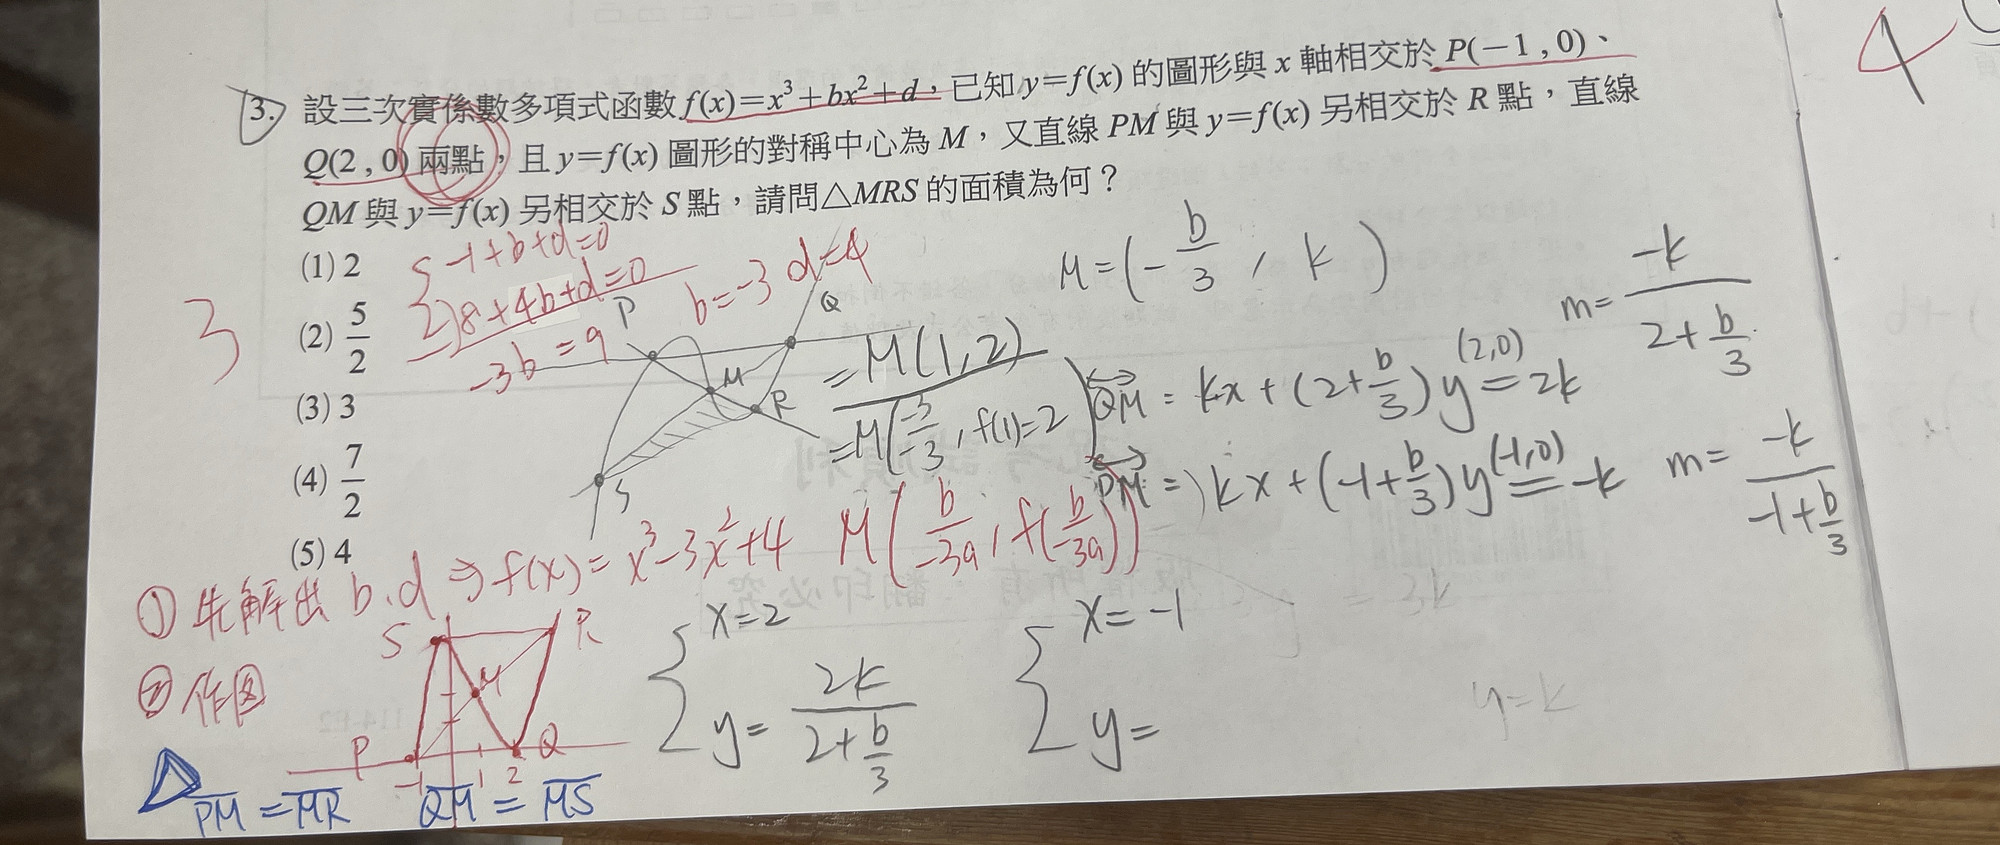 3. 設三次實係數多項式函數 f(x)=x³+bx²+d,已知 y=f(x) 的圖形與 x 軸相交於 P(−1 , 0)、
Q(2 , 0) 兩點,且 y=f(x) 圖形的對稱中心為 M,又直線 PM 與 y=f(x) 另相交於 R 點,直線
QM 與 y=f(x) 另相交於 S 點,請問△MRS 的面積為何?
(1) 2
(2) 5/2
(3) 3
(4) 7/2
(5) 4
4
3
-1+b+d=0
8+4b+d=0
-3b=9
b=-3 d=4
P
Q
M
R
S
M=(-b/3, k)
=M(1,2)
=M(-3/-3, f(1)=2
m= -k/(2+b/3)
QM = kx+(2+b/3)y (2,0)= 2k
PM =) kx+(-1+b/3)y (-1,0)= -k
m= -k/(-1+b/3)
① 先解出 b.d ⇒ f(x)=x³-3x²+4 M(b/-3a, f(b/-3a))
② 作図
S
R
M
P
Q
-1
1
2
x=2
y= 2k/(2+b/3)
x=-1
y=
y=k
PM=MR QM=MS